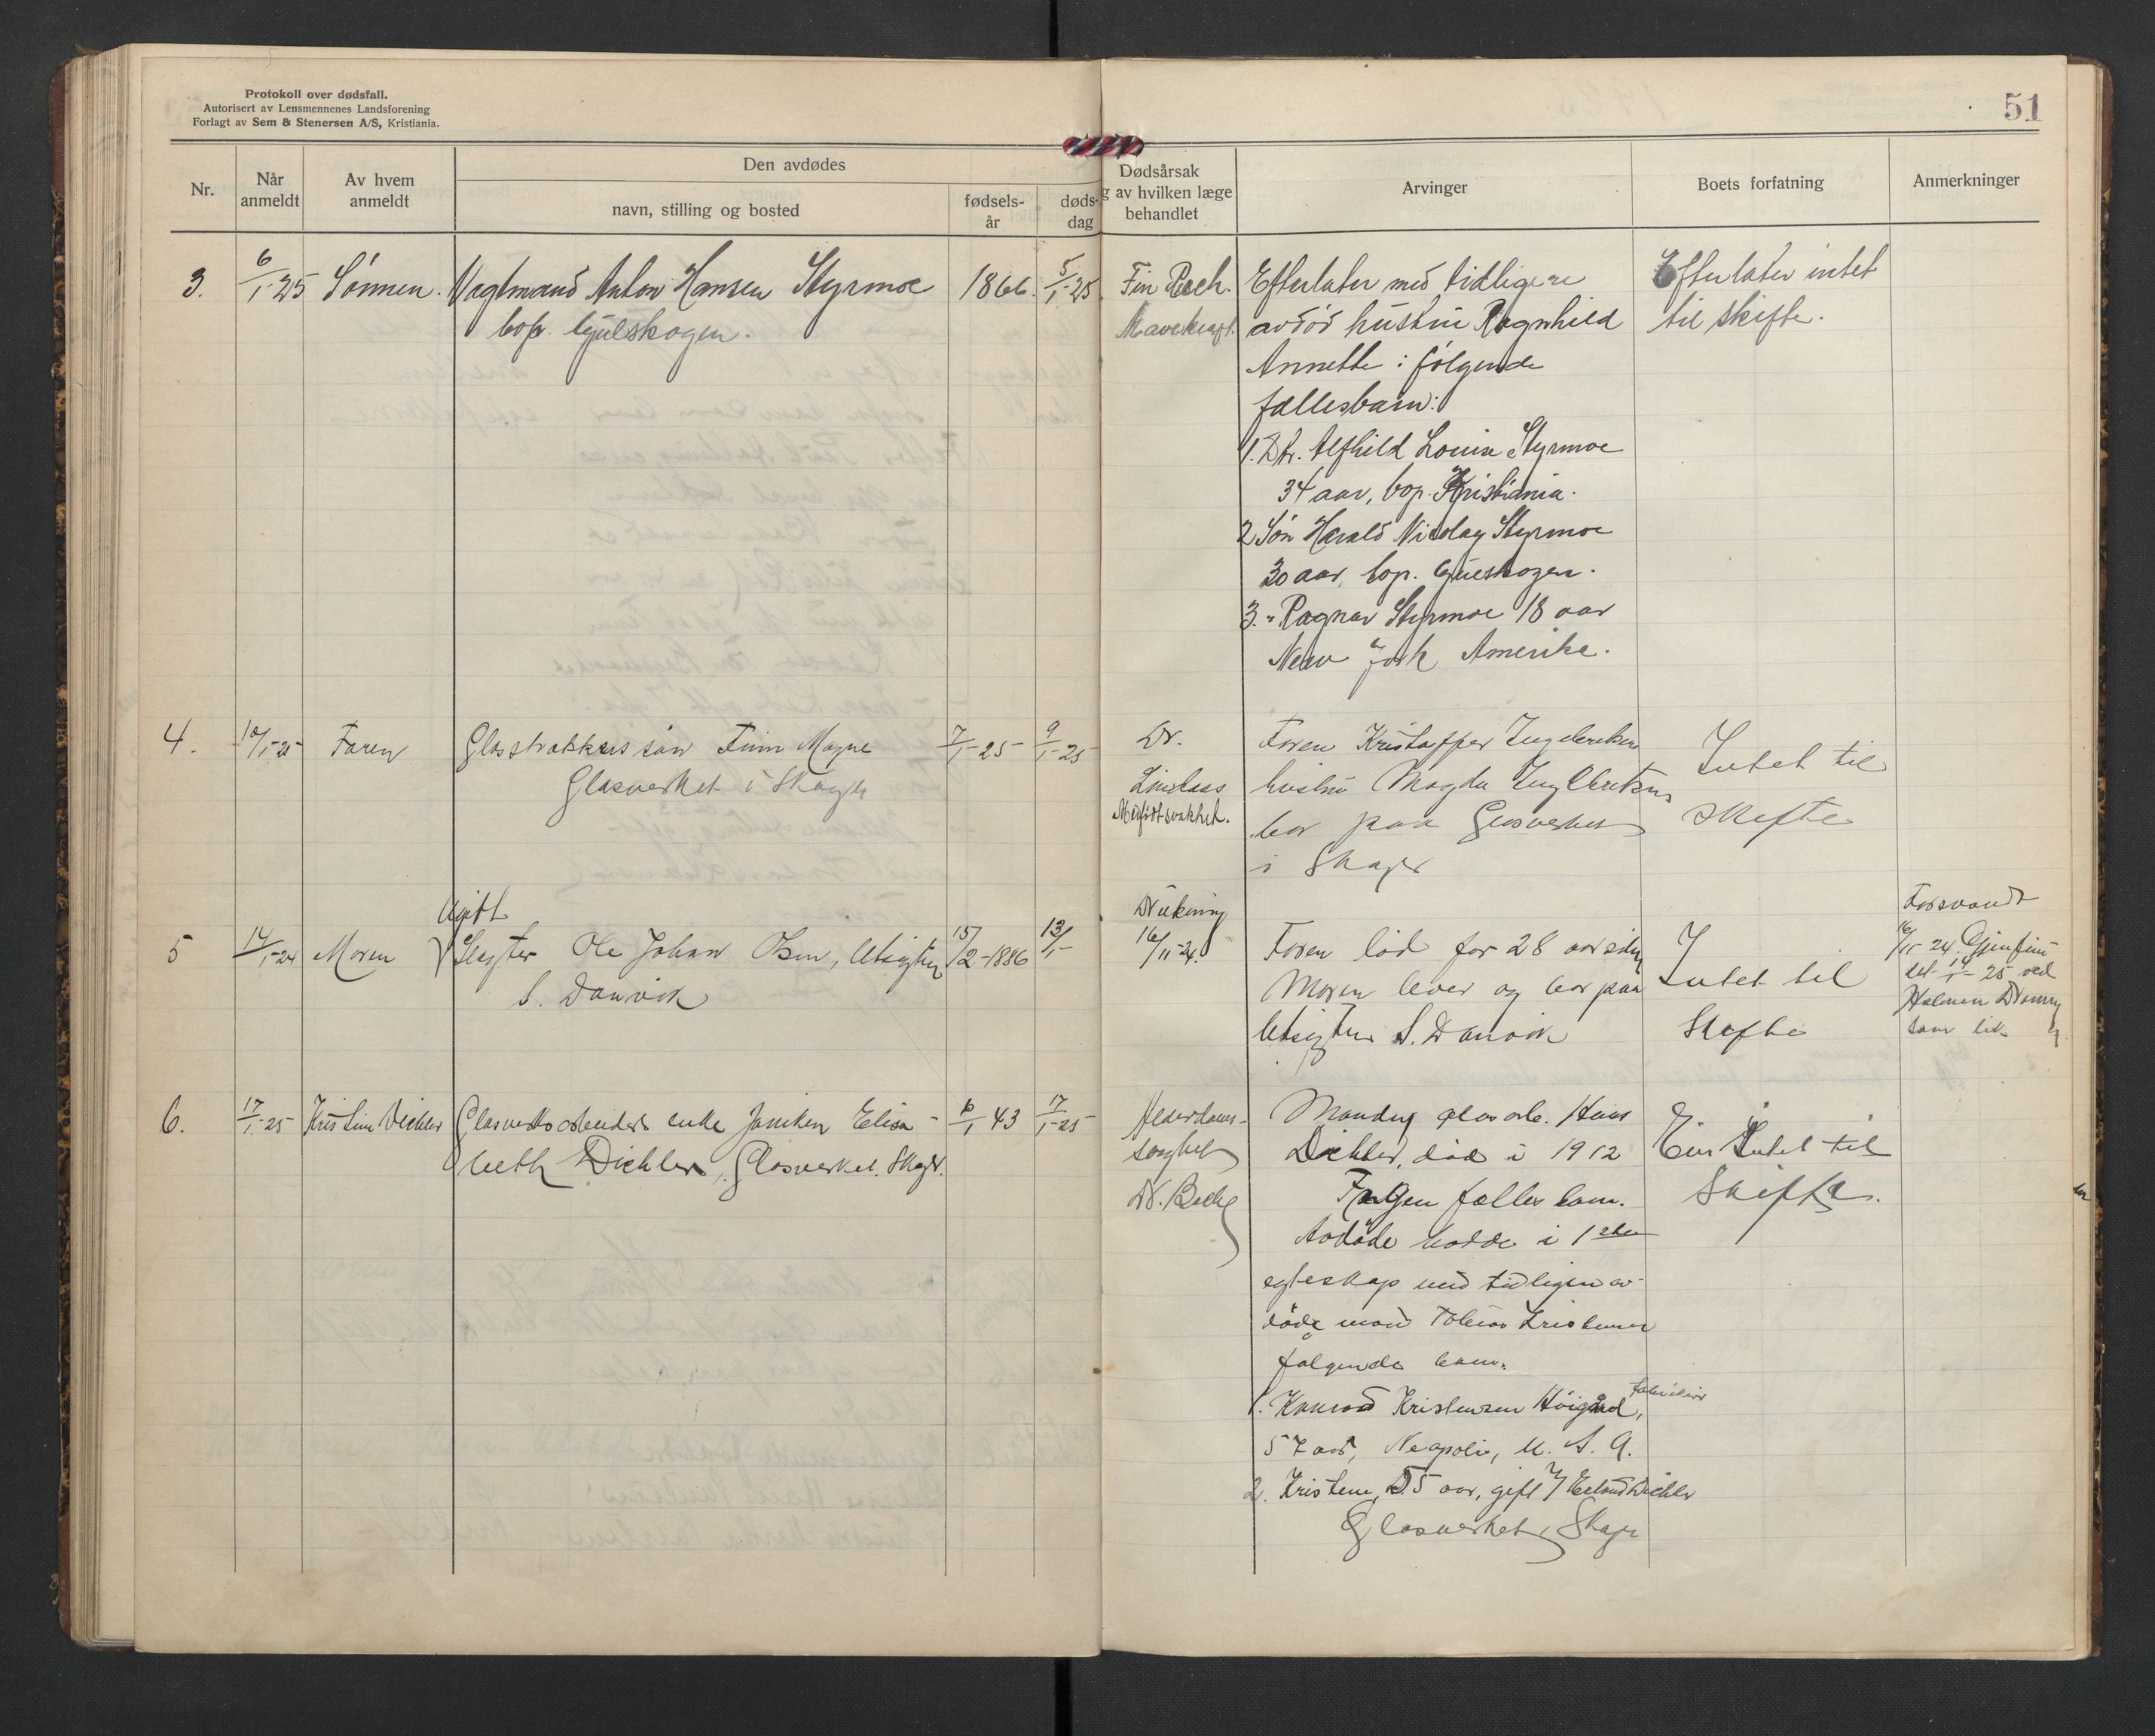 Protokoll over dødsfall.
Autorisert av Lensmennenes Landsforening
Forlagt av Sem & Stenersen A/S, Kristiania.
51
Nr.
Når anmeldt
Av hvem anmeldt
Den avdødes
navn, stilling og bosted
fødsels-
år
døds-
dag
Dødsårsak
g av hvilken læge
behandlet
Arvinger
Boets forfatning
Anmerkninger
3.
6/1-25
Sønnen.
Vagtmand Anton Hansen Styrmoe
bop. Gulskogen.
1866.
5/1-25.
Fin Bech.
Mavekræft.
Efterlater med tidligere
avdød hustru Ragnhild
Annette : følgende
fællesbarn:
1. Dtr. Alfhild Louise Styrmoe
34 aar, bop. Kristiania.
2 Søn Harald Nicolay Styrmoe
30 aar, bop. Gulskogen.
3. " Ragnar Styrmoe 18 aar
New York Amerika.
Efterlater intet
til skifte.
4.
10/1-25
Faren
søn Finn Magne
Glasverket i Skoger
7/1-25
9/1-25
Dr.
Medfødt svakhet.
Faren Kristoffer Engebretsen
hustru Magda Engebretsen
bor paa Glasverket
i Skoger
Intet til
skifte
5
14/1-24
Moren
Ugift
Slagter Ole Johan Olsen, Utsigten
S. Danvik
15/2-1886
13/1-
Drukning
16/11-24.
Faren død for 28 aar siden
Moren lever og bor paa
Utsigten S. Danvik
Intet til
Skifte
Forsvandt
16/11-24. Gjenfun-
det 14/1-25 ved
Holmen Drammen
som lik
6.
17/1-25
Kristine Dichler
Glasverksarbeider enke Janiken Elisa-
beth Dichler, Glasverket. Skoger.
6/1 43
17/1-25
Alderdoms-
svaghet
Dr. Bech
Manden glasarb. Hans
Dichler, død i 1912
Ingen fælles barn.
Avdøde hadde i 1ste
egteskap med tidligere av-
døde mand Tobias Kristensen
følgende barn.
1. Konrad Kristensen Høigård,
57 aar, Neapolis, U. S. A.
2. Kristine, 55 aar, gift m/ Dichler
Glasverket, Skoger
Eier Intet til
Skifte.